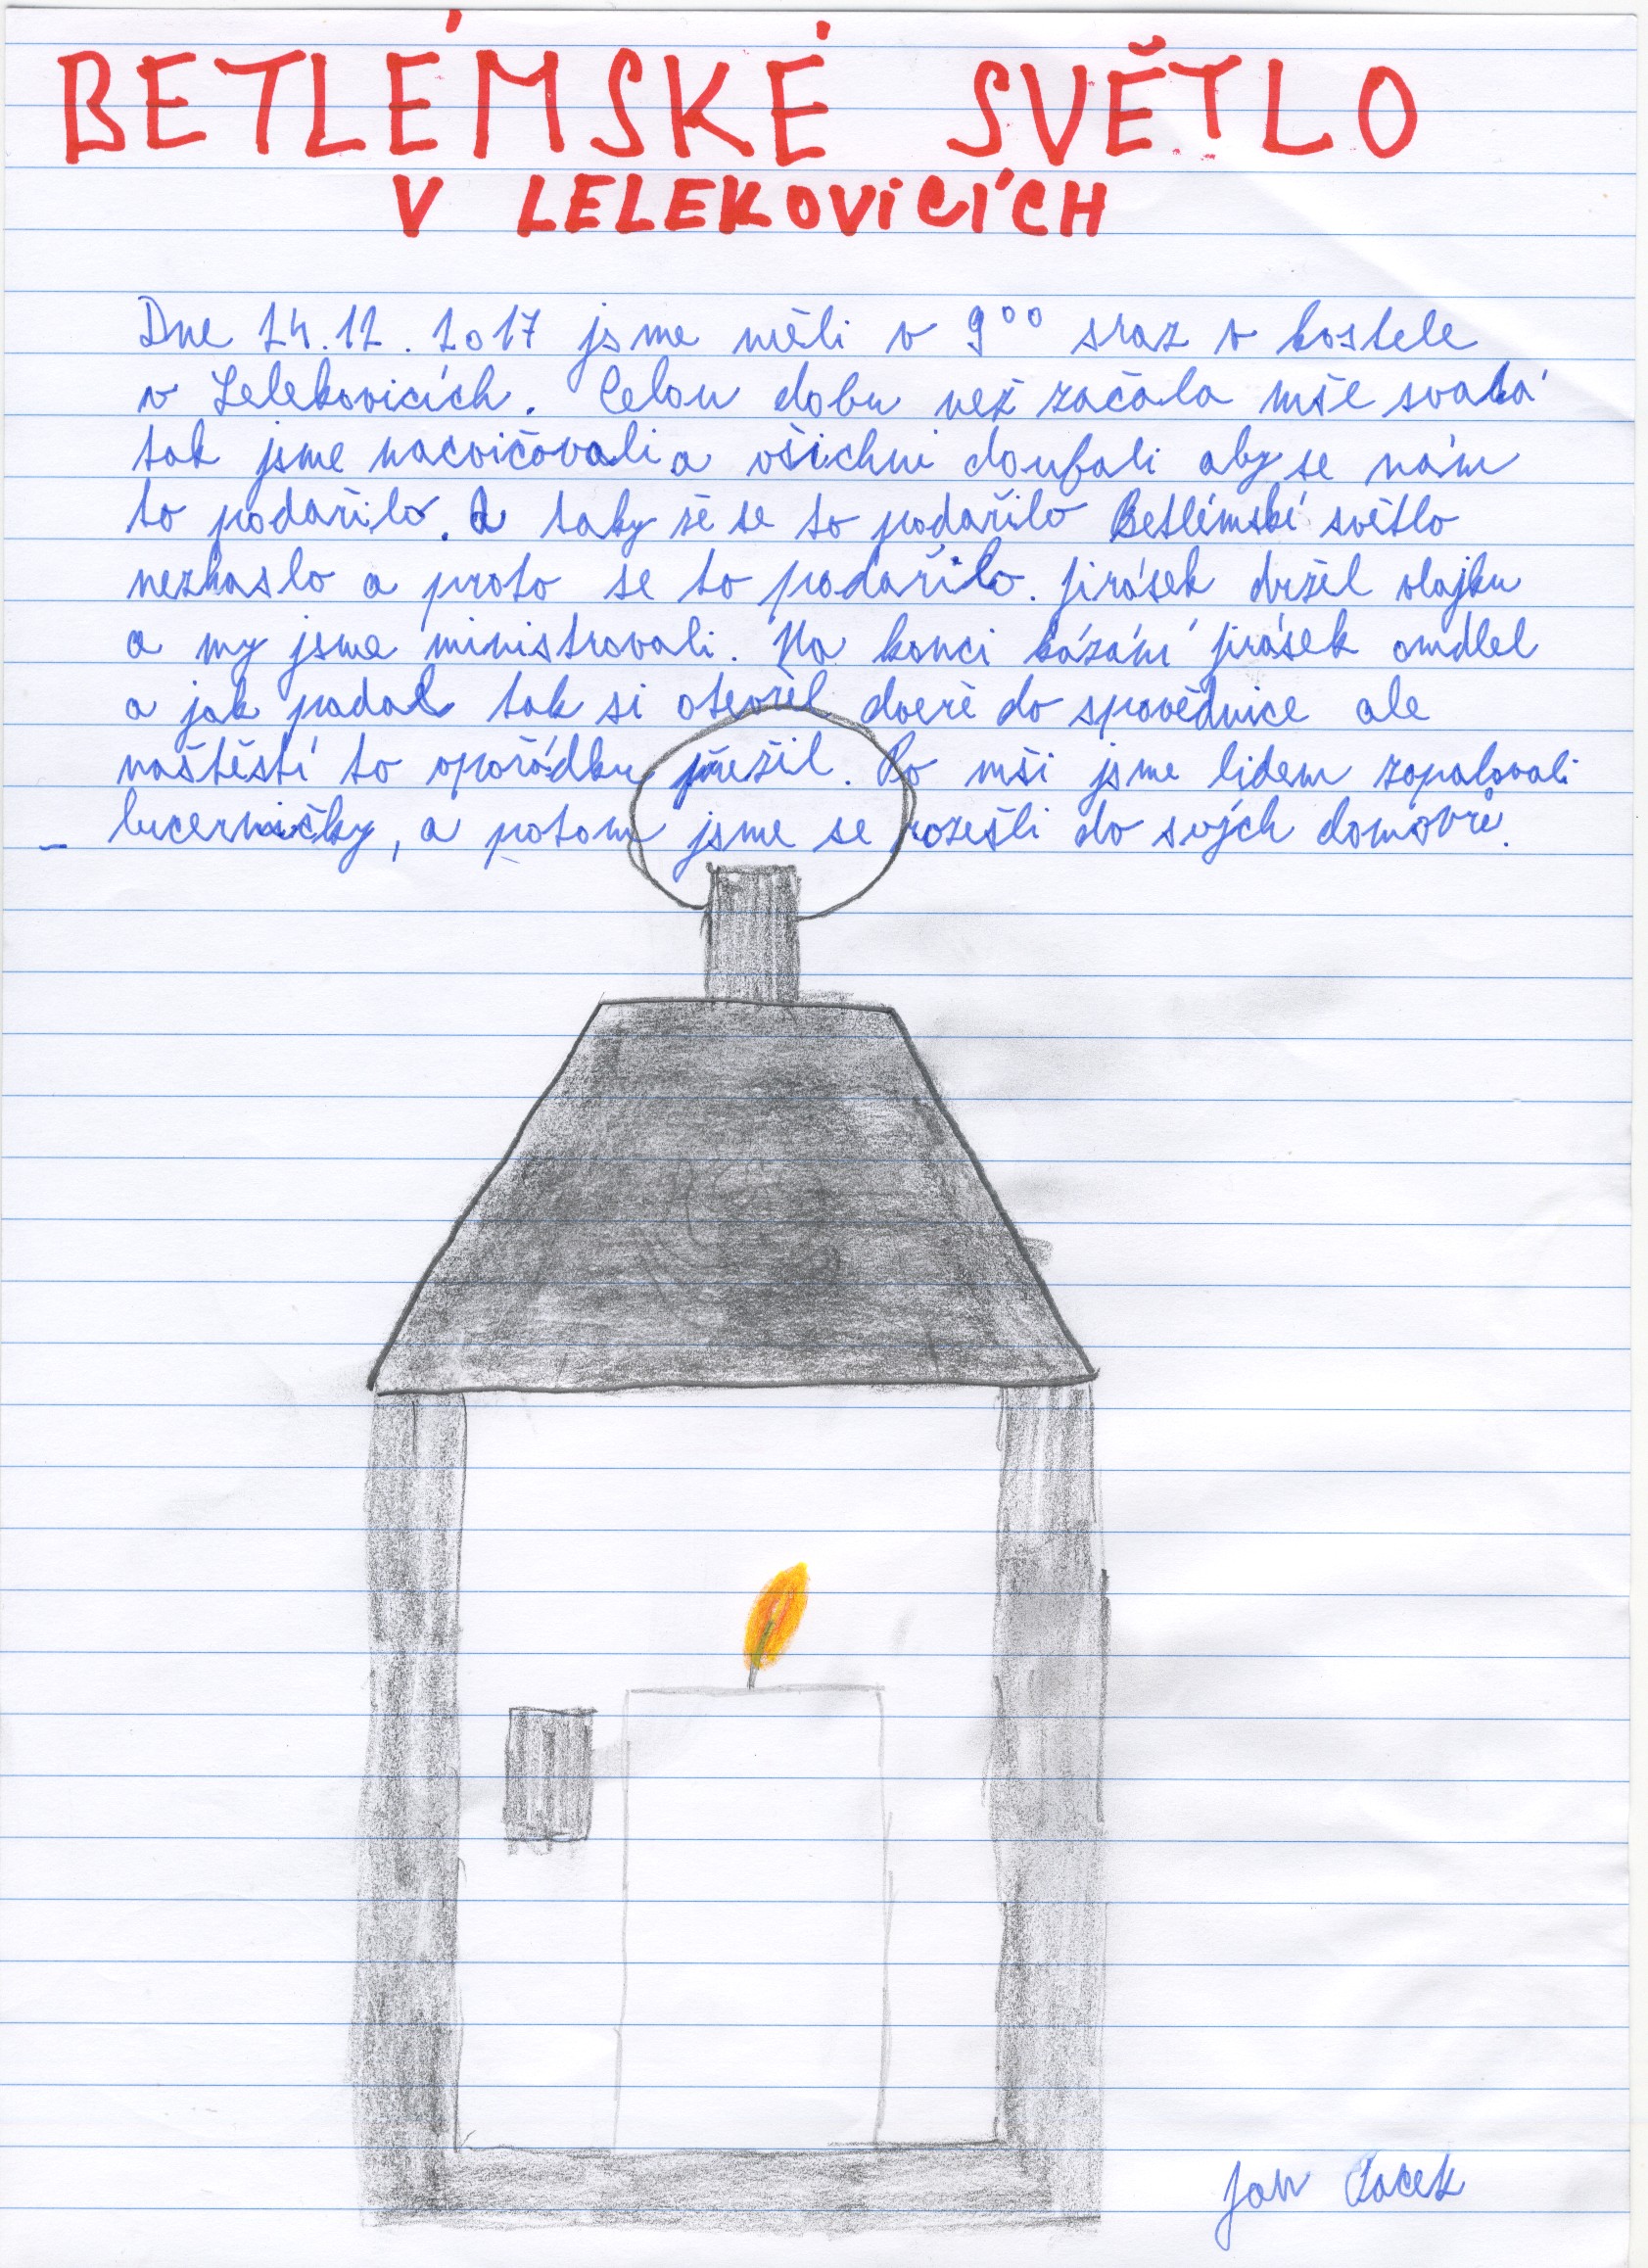 BETLÉMSKÉ SVĚTLO
V LELEKOVICÍCH
Dne 24.12.2017 jsme měli v 9⁰⁰ sraz v kostele
v Lelekovicích. Celou dobu než začala mše svatá
tak jsme nacvičovali a všichni doufali aby se nám
to podařilo. A taky že se to podařilo Betlémské světlo
nezhaslo a proto se to podařilo. Jirásek držel vlajku
a my jsme ministrovali. Na konci kázání Jirásek omdlel
a jak padal tak si otevřel dveře do spovědnice ale
naštěstí to vpořádku přežil. Po mši jsme lidem zapalovali
lucerničky, a potom jsme se rozešli do svých domovů.
Jan